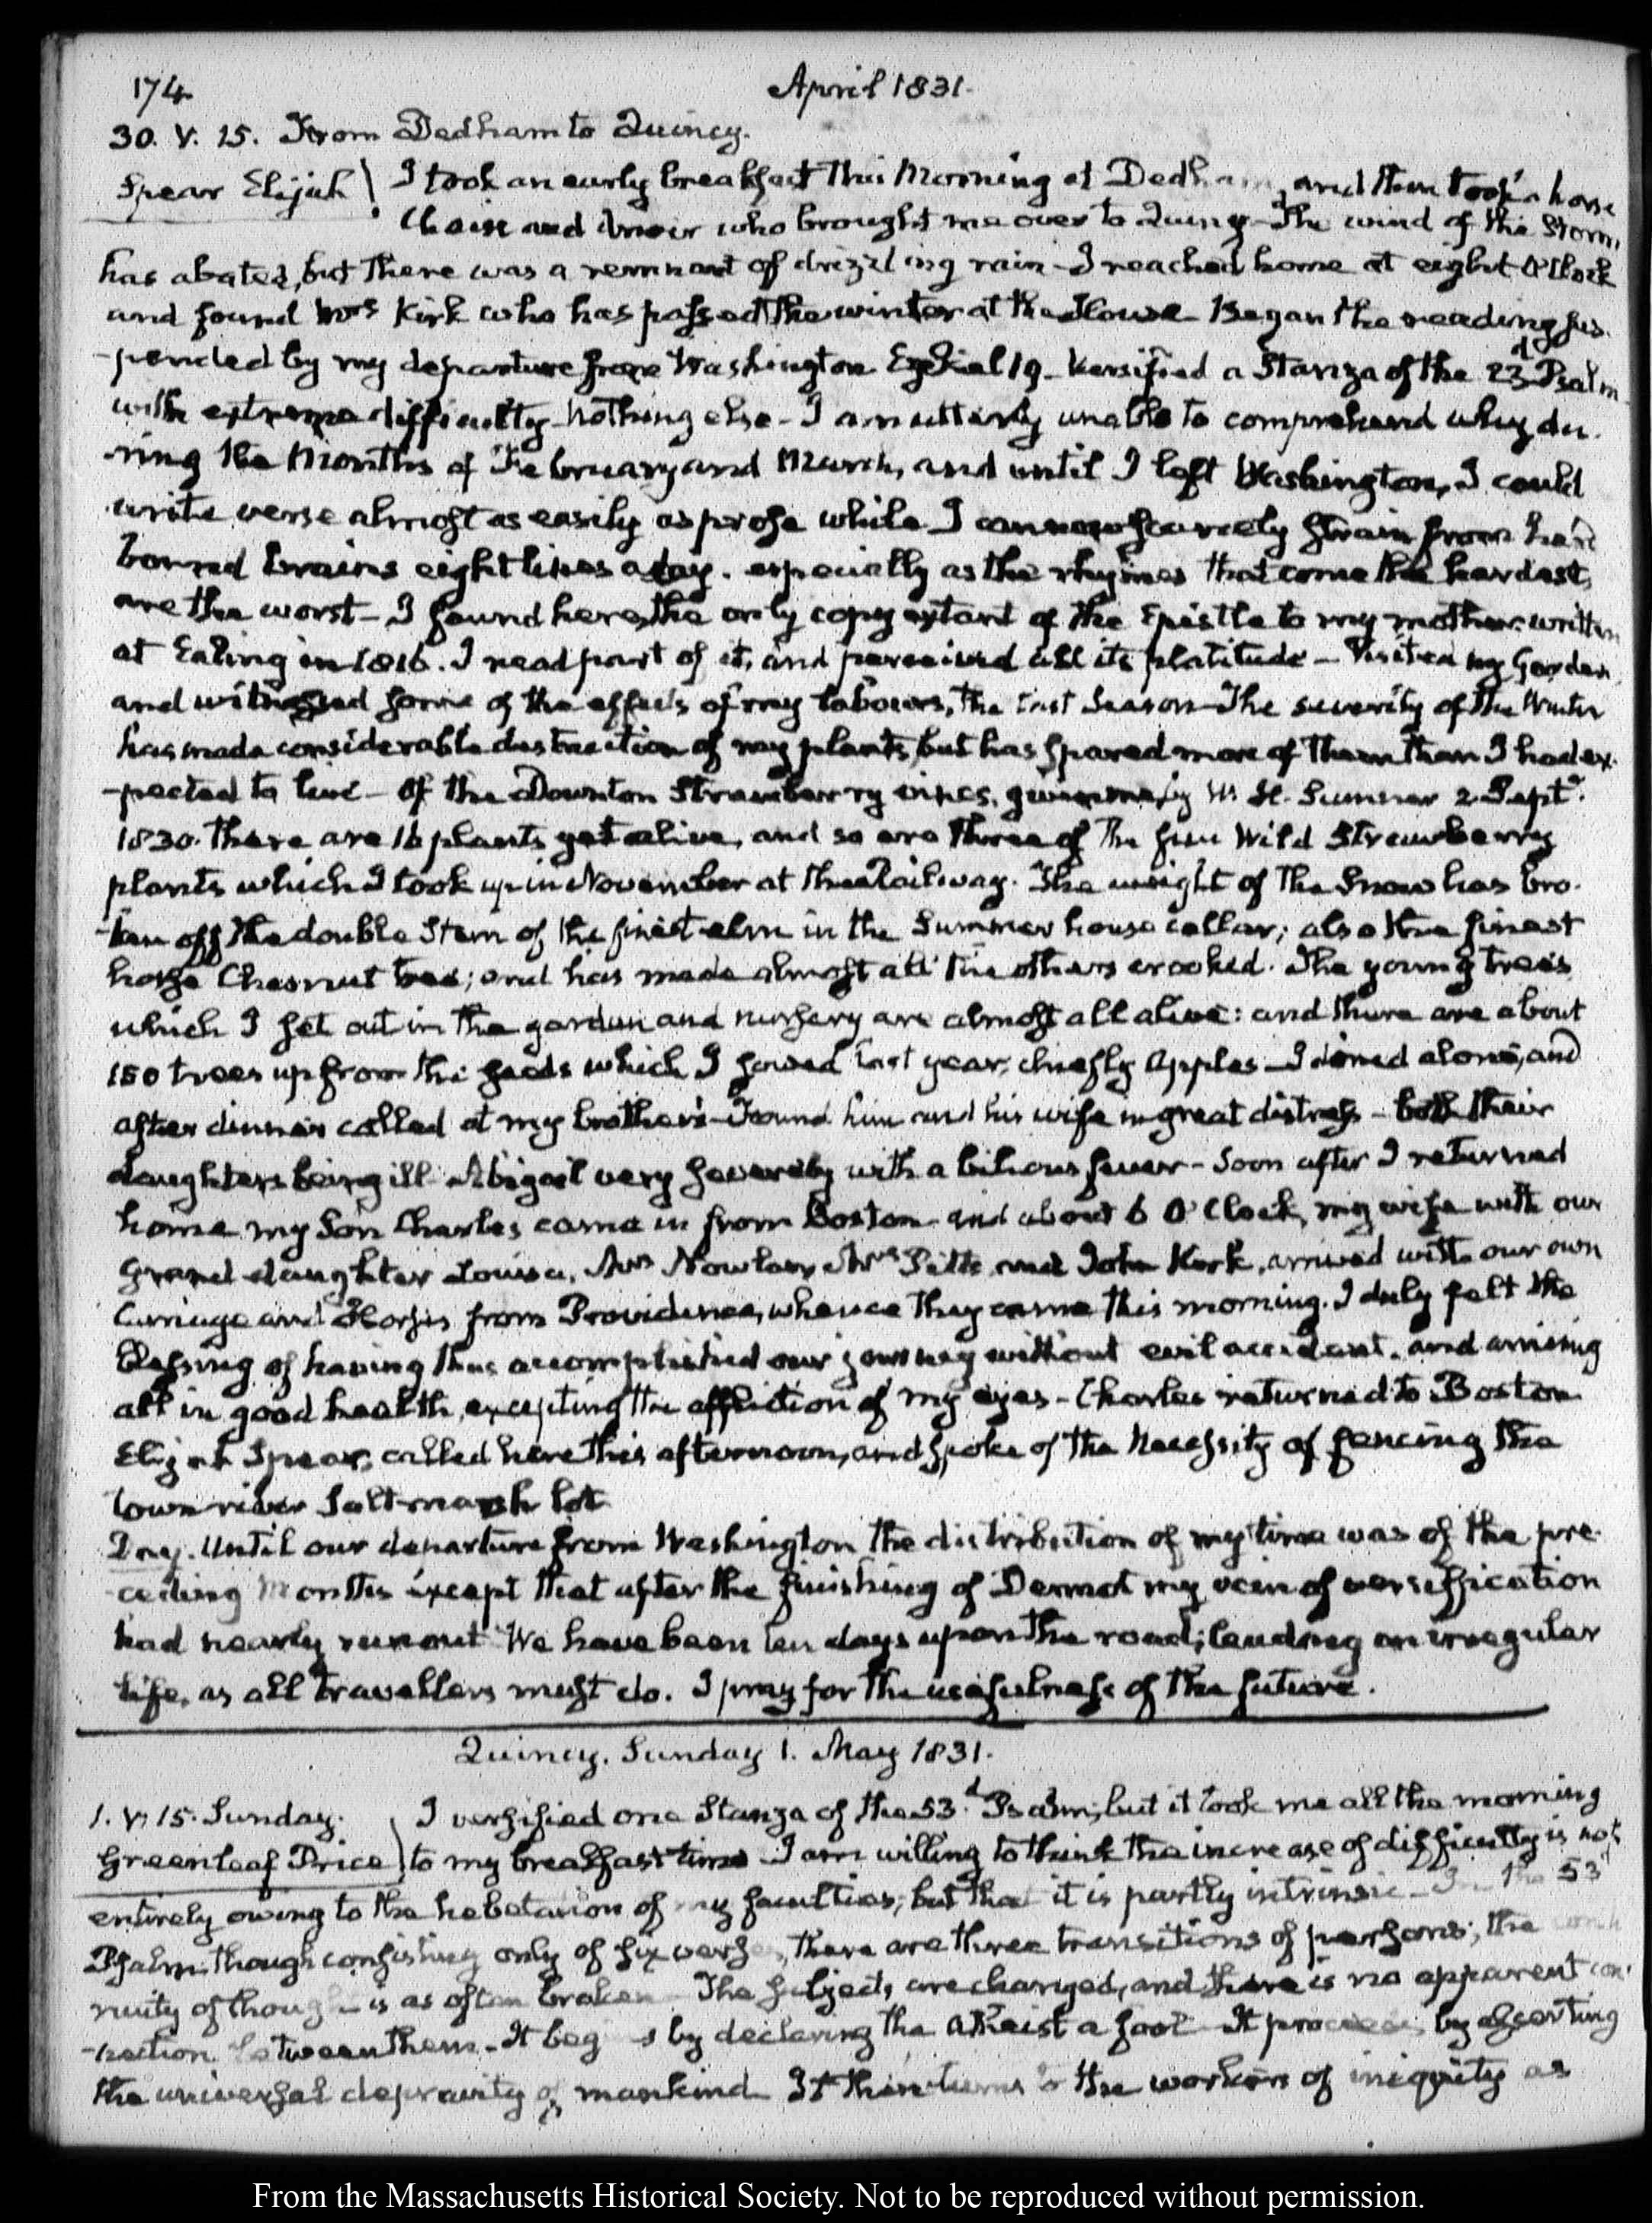 174
April 1831.
30. V. 15. From Dedham to Quincy.
Spear Elijah
I took an early breakfast this Morning at Dedham, and then took a horse
Chaise and driver who brought me over to Quincy. The wind of the Storm,
has abated, but there was a remnant of drizzling rain – I reached home at eight O'Clock
and found Mrs Kirk who has passed the winter at the House – Began the reading sus-
-pended by my departure from Washington Ezekiel 19. Versified a Stanza of the 23d Psalm
with extreme difficulty – Nothing else – I am utterly unable to comprehend why du-
-ring the Months of February and March, and until I left Washington, I could
write verse almost as easily as prose while I can now scarcely strain from hard
bound brains eight lines a day. especially as the rhymes that come the hardest,
are the worst – I found here, the only copy extant of the Epistle to my mother written
at Ealing in 1816. I read part of it, and perceived all its platitude – Visited my Garden
and witnessed some of the effects of my labours, the last Season – The severity of the Winter
has made considerable destruction of my plants, but has spared more of them than I had ex-
-pected to live – Of the Downton Strawberry vines, given me by W. H. Sumner 2 Septr
1830. there are 16 plants yet alive, and so are three of the five Wild Strawberry
plants which I took up in November at the Railway. The weight of the Snow has bro-
-ken off the double Stem of the finest elm in the Summer house cellar; also the finest
horse Chesnut tree; and has made almost all the others crooked. The young trees
which I set out in the garden and nursery are almost all alive: and there are about
150 trees up from the seeds which I sowed last year, chiefly Apples – I dined alone, and
after dinner called at my brother's – Found him and his wife in great distress – both their
daughters being ill – Abigail very severely with a bilious fever – Soon after I returned
home my Son Charles came in from Boston – and about 6 O'Clock, my wife with our
Grand daughter Louisa, Mrs Nowlan, Mrs Pitts and John Kirk, arrived with our own
Carriage and Horses from Providence, whence they came this morning. I duly felt the
Blessing of having thus accomplished our journey without evil accident, and arriving
all in good health, excepting the affliction of my eyes – Charles returned to Boston
Elijah Spear, called here this afternoon, and spoke of the Necessity of fencing the
town river Salt-marsh lot
Day. Until our departure from Washington the distribution of my time was of the pre-
-ceding Months except that after the finishing of Dermot my vein of versification
had nearly run out We have been ten days upon the road; leading an irregular
life, as all travellers must do. I pray for the usefulness of the future.
Quincy. Sunday 1. May 1831.
1. V. 15. Sunday.
Greenleaf Price
I versified one Stanza of the 53d Psalm; but it took me all the morning
to my breakfast time – I am willing to think the increase of difficulty is not
entirely owing to the hebetation of my faculties; but that it is partly intrinsic – In the 53d
Psalm though consisting only of six verses, there are three transitions of persons; the conti-
nuity of thought is as often broken – The subjects are changed, and there is no apparent con-
-nection between them – It begins by declaring the Atheist a fool – It proceeds by asserting
the universal depravity of mankind It then turns to the workers of iniquity as
From the Massachusetts Historical Society. Not to be reproduced without permission.